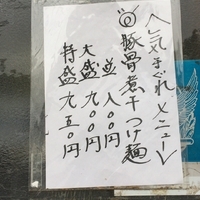 気まぐれメニュー
豚骨煮干つけ麺
並 八〇〇円
大盛 九〇〇円
特盛 九五〇円